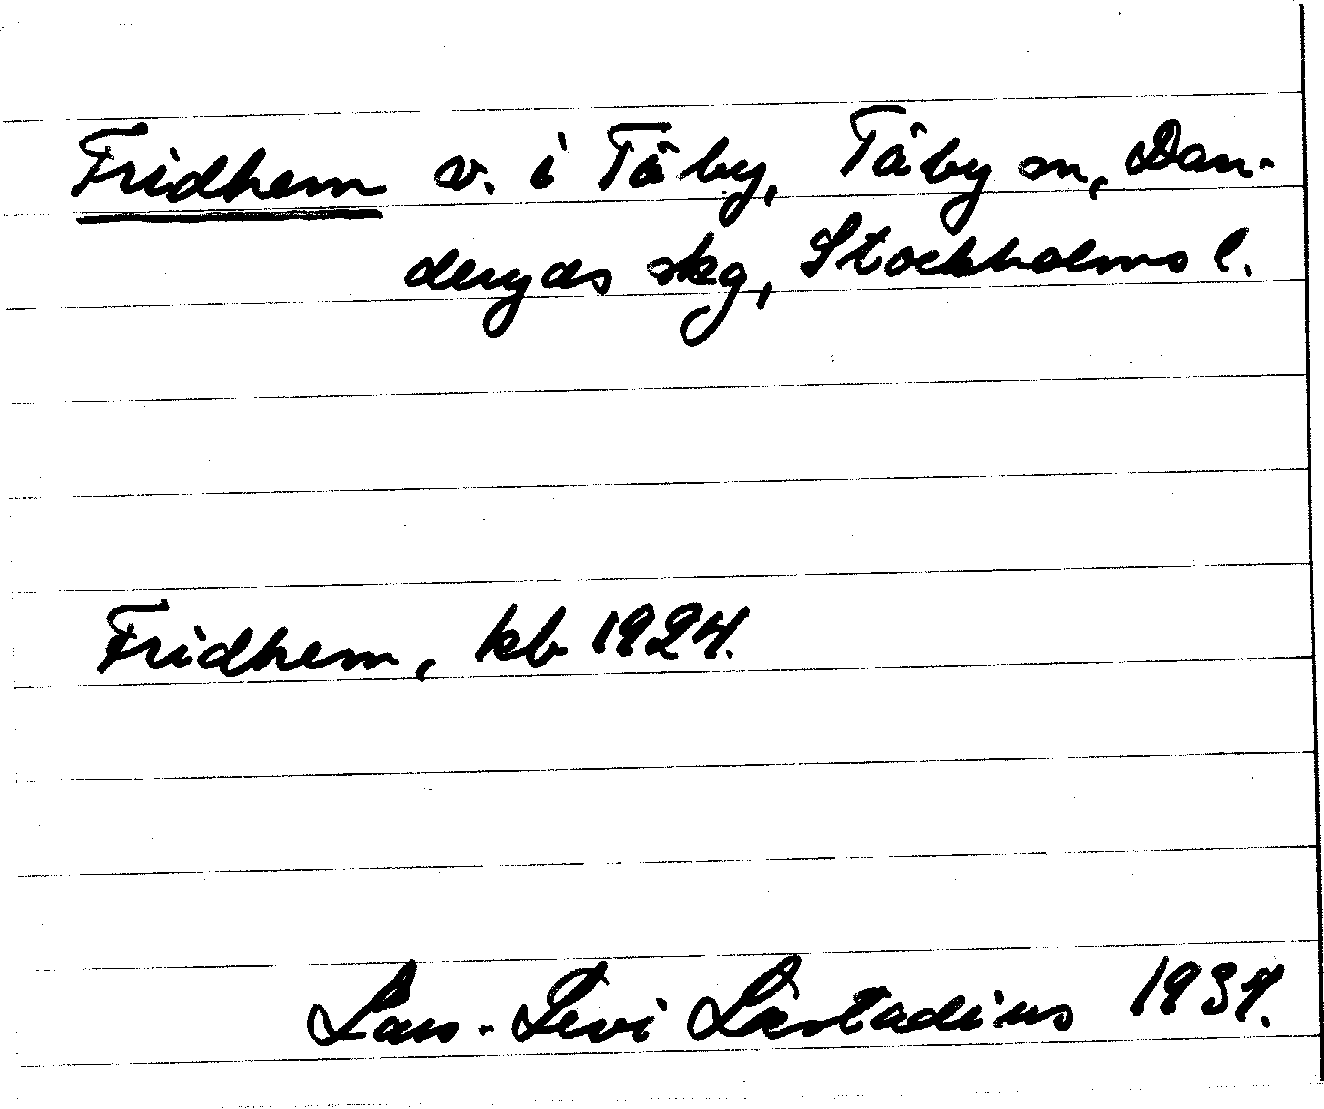 Fridhem v. i Täby, Täby sn, Dan-
deryds skg, Stockholms l.
Fridhem, kb 1924.
Lars-Levi Læstadius 1937.